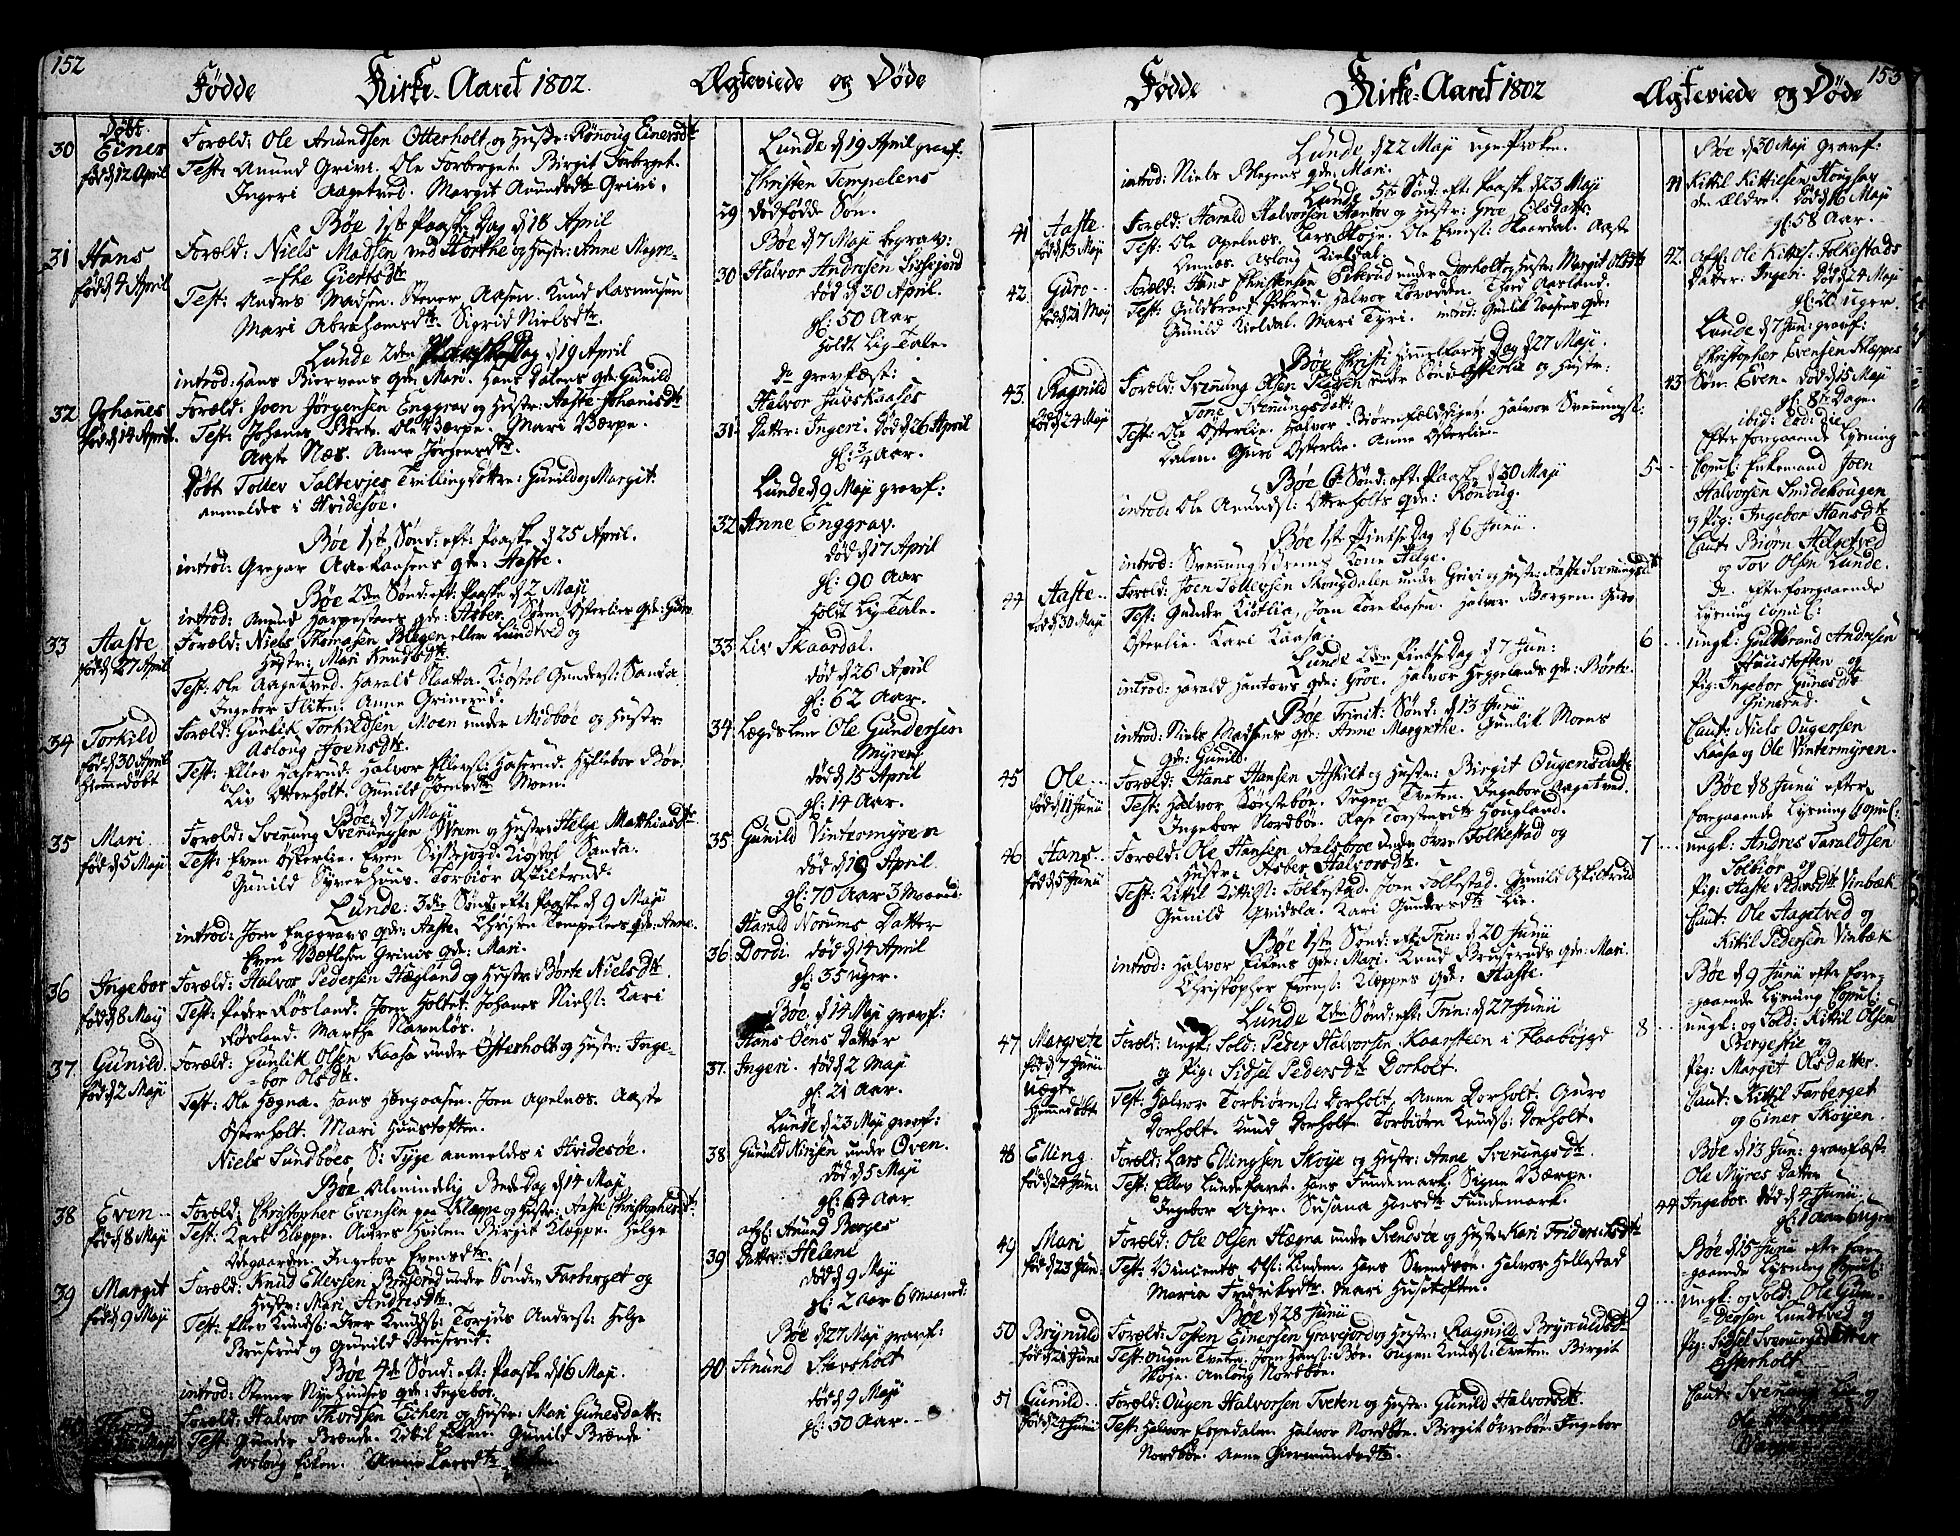 152
Fødde Kirke-Aaret 1802. Ægteviede og Døde
30 Døbt Einer
fød d 12 April
Foræld: Ole Anundsen Otterholt og Hustr: Rønoug Einersdtr
Test: Anund Grivi. Ole Forberget. Birgit Forberget.
Ingeri Aagetved. Margit Anundsdtr Grivi.
Bøe 1ste Paaske Dag d 18 April
31 Hans
fød d 4 April
Foræld: Niels Madsen ved Kirke og Hustr: Anne Magre-
=the Giertsdtr
Test: Anders Madsen. Stener Aasen. Knud Rasmusen
Mari Abrahamsdtr. Sigrid Nielsdtr.
Lunde 2den Paaske Dag d 19 April
introd: Hans Biervens qde: Mari. Hans Dalens qde: Gunild
32 Johanes
fød d 14 April
Foræld: Joen Jørgensen Enggrav og Hustr: Aaste Johanisdtr
Test: Johanes Børte. Ole Værpe. Mari Værpe.
Aaste Næs. Anne Jørgensdtr.
Døbt Tollev Saltevjes Tvilling Døttre: Gunild og Margit.
anmeldes i Hvidesøe.
Bøe 1ste Sønd: eft: Paaske d 25 April.
introd: Gregar Aarkaasens qde: Aaste.
Bøe 2den Sønd: eft: Paaske d 2 Maji
introd: Anund Harpestens qde: Asber. Søren Østerlies qde: Guro
33 Aaste
fød d 27 April
Foræld: Niels Thomasen Blegen eller Lundtvid og
Hustr: Mari Knudsdtr.
Test: Ole Aagetved. Harald Slaatta. Kiøstel Gunderst: Sanda.
Ingebor Fliten. Anne Grinerud.
34 Torkild
fød d 30 April
Hiemedøbt
Foræld: Gunlik Torkildsen Moen under Midbøe og Hustr
Aslong Joensdtr.
Test: Ellev Haserud. Halvor Ellevs: Haserud. Hyllebor Bør.
Liv Otterholt. Gunild Joensdtr Moen.
Bøe d 7 Maji
35 Mari
fød d 5 Maji
Foræld: Svenung Svenungsen Wrem og Hustr: Helge Matthiasdtr
Test: Even Østerlie. Even Sissejord. Kiøstol Sanda.
Gunild Syverhuus. Torbiør Askiltrud.
Lunde: 3die Sønd: eft: Paaske d 9 Maji
introd: Joen Enggravs qde: Aaste. Christen Tempelens qde: Anne.
Even Bøtlesen Grinis qde: Mari.
36 Ingebor
fød d 8 Maji
Foræld: Halvor Pedersen Hægland og Hustr: Børte Nielsdtr
Test: Peder Røsland. Joen Holtet. Johanes Nielst: Kari
Røsland. Marthe Navnløs.
37 Gunild
fød d 2 Maji
Foræld: Gunlik Olsen Kaasa under Østerholt og Hustr: Inge-
=bor Olsdtr.
Test: Ole Hægna. Hans Hængaasen. Joen Apelnæs. Aaste
Østerholt. Mari Huustoften.
Niels Sundbøes S: Tyge anmeldes i Hvidesøe.
Bøe Almindelig Bede Dag d 14 Maji
38 Even
fød d 8 Maji
Foræld: Christopher Evensen paa Kleppe og Hustr: Aaste Christophersdtr.
Test: Karl Kleppe. Anders Hvilen. Birgit Kleppe. Helge
Odegaarden. Ingebor Evensdtr.
39 Margit
fød d 9 Maji
Foræld: Knud Ellefsen Bruserud under Søndre Farberget og
Hustr: Mari Andersdtr.
Test: Ellev Knudst: Iver Knudst: Torjus Anderst: Helge
Bruserud og Gunild Bruserud.
Bøe 4de Sønd: eft: Paaske d 16 Maji.
introd: Stener Nyehuuses qde: Ingebor.
Thord
Foræld: Halvor Thordsen Eihen og Hustr: Mari Gunesdatt:
Test: Gunder Brænde. Kittil Eiken. Gunild Brænde
Aslong Eiken. Anne Larsdtr
Lunde d 19 April gravf:
Christen Tempelens
29 dødfødde Søn.
Bøe d 7 Maji begrav:
30 Halvor Andersen Sissejord
død d 30 April.
gl: 50 Aar
holdt Lig Tale.
Do gravfæst:
Halvor Juvskaases
31. Datter: Ingeri. død d 26 April
gl: 3/4 Aar.
Lunde d 9 Maji gravf:
32 Anne Enggrav.
død d 17 April
gl: 90 Aar
holdt Lig Tale.
33. Liv Skaardal.
død d 26 April
gl: 62 Aar.
34. Lægdslem Ole Gundersen
Myren
død d 15 April
gl: 14 Aar.
35 Gunild Vintermyren
død d 19 April.
gl: 70 Aar 3 Maaned:
Harald Norums Datter
36 Dordi. død d 14 April
gl: 35 uger.
Bøe d 14 Maji gravf:
Hans Oens Datter
37. Ingeri. død d 2 Maji
gl: 21 Aar.
Lunde d 23 Maji gravf:
38. Gunuld Nirisen under Oven.
død d 5 Maji
gl: 64 Aar
afg: Anund Berges
39 Datter: Helene
død d 9 Maji
gl: 2 Aar 6 Maaned:
Bøe d 27 Maji gravf:
40. Anund Stavsholt
død d 9 Maji
gl: 50 Aar.
153
Fødde Kirke-Aaret 1802 Ægteviede og Døde
Lunde d 22 Maji ugePræken.
introd: Niels Blegens qde: Mari.
Lunde 5te Sønd: eft: Paaske d 23 Maji
41 Aaste
fød d 13 Maji
Foræld: Harald Halvorsen Hantov og Hustr: Groe Eilsdatt:
Test: Ole Apelnæs. Lars Skoje. Ole Evenst: Skaardal. Aaste
Omnæs. Aslong Kieldal.
42. Guro
fød d 21 Maji
Foræld: Hans Christensen Pikerud under Dorholt og Hustr: Margit Olsdtr
Test: Guldbrand Pikerud. Halvor Løvodden. Thord Aasland.
Gunild Kieldal. Mari Tyri. introd: Gunlik Kaasens qde:
Bøe Christi Himmelfarts Dag d 27 Maji.
43. Ragnild
fød d 24 Maji
Foræld: Svenung Olsen Hagen under Sønd: Østerlie og Hustr:
Tone Svenungsdatt:
Test: Ole Østerlie. Halvor Biørnefieldsiger Halvor Svenungst:
Dalen. Guro Østerlie. Anne Østerlie.
Bøe 6te Sønd: eft: Paaske d 30 Maji
introd: Ole Anundst: Otterholts qde: Rønoug.
Bøe 1ste Pintse Dag d 6 Junii
introd: Svenung Vrems Kone Helge.
44 Aaste
fød d 30 Maji
Foræld: Joen Tollevsen Skougdalen under Grivi og Hustr: Aaste Svenungsdtr
Test: Gunder Kiøtlia, Joen Torekaasen. Halvor Borgen. Guro
Østerlie. Kari Kaasa.
Lunde 2den Pintse Dag d 7 Jun:
introd: Harald Hantovs qde: Groe. Halvor Heggelands qde: Børte.
Bøe Trinit: Sønd: d 13 Junii
introd: Niels Madsens qde: Anne Margrethe. Gunlik Moens
qde: Gunild.
45 Ole
fød d 11 Junii
Foræld: Hans Hansen Askilt og Hustr: Birgit Ougensdatt:
Test: Halvor Sønstebøe. Ougen Tveten. Ingebor Aagetved.
Ingebor Nordbøe. Aase Torstensdtr Hougland.
46. Hans
fød d 5 Junii
Foræld: Ole Hansen Halsbroe under Øvre Folkestad og
Hustr: Asber Halvorsdtr.
Test: Kittil Kittilst: Folkestad. Joen Folkestad. Gunild Askiltrud
Gunild Gvidsla. Kari Gundersdtr Lie.
Bøe 1ste Sønd: eft: Trin: d 20 Junii
introd: Halvor Eikens qde: Mari. Knud Bruseruds qde: Mari.
Christopher Evenst: Kleppes qde: Aaste.
Lunde 2den Sønd: eft: Trin: d 27 Junii
47 Margrete
fød d 7 Junii
uægte
Hiemedøbt
Foræld: ungk: Sold: Peder Halvorsen Kaarsteen i Flaabygd
og Pig: Sidsel Pedersdtr Dorholt.
Test: Halvor Torbiørnst: Dorholt, Anne Dorholt. Guro
Dorholt. Knud Dorholt. Torbiørn Knudst: Dorholt.
48 Elling
fød d 24 Jun:
Foræld: Lars Ellingsen Skoye og Hustr: Anne Svenungsdtr.
Test: Ellev Lundefaret. Hans Fundemark. Signe Værpe.
Ingebor Ajer. Susana Hansdtr Fundemark.
49 Mari
fød d 23 Jun:
Foræld: Ole Olsen Hægna under Sendstøe og Hustr: Kari Fridericksdtr
Test: Vincents Ols: Linden. Hans Svendsøn. Halvor Hellestad
Maria Fredriksdtr. Mari Husetoften.
Bøe d 28 Junii
50 Brynuld
fød d 21 Juni
Foræld: Tosten Einersen Gravejord og Hustr: Ragnild Brynuldsdtr
Test: Ougen Tveten. Joen Hanst: Bøe. Ougen Knudst: Tveten. Birgit
Skoje. Anlong Nordbøe.
51 Gunild
fød d 24 Junii
Foræld: Ougen Halvorsen Tveten og Hustr: Gunild Halvorsdtr.
Test: Halvor Espedalen. Halvor Nordbøe. Birgit Øvrebøe. Ingebor
Nordbøe. Anne Giermundsdtr.
Bøe d 30 Maji gravf:
41 Kittil Kittilsen Hougsar
den Ældre. død d 16 Maji
gl: 58 Aar.
42. afg: Ole Kittels: Folkestads
Datter. Ingebr: død d 4 Maji
gl: 20 uger.
Lunde d 7 Jun: gravf:
Christopher Evensen Kleppes
43. Søn: Even. død d 15 Maji
gl: 8te Dage.
ibid: Eod: die
Efter forgaaende Lysning
5 Copul: Enkemand Joen
Halvorsen Smidehougen
og Pig: Ingebor Hansdtr
Caut: Biørn Helgetved
og Tov Olsen Lunde.
Do. efter forgaaende
Lysning Copul:
6 ungk: Guldbrand Andersen
Huustoften og
Pig: Ingebor Gunesdtr
Grinerud.
Caut: Niels Ougersen
Kaasa og Ole Vintermyren.
Bøe d 8 Junii efter
forgaaende Lysning Copul:
7 ungk: Andres Taraldsen
Solbiør og
Pig: Aaste Pedersdtr Vinbæk
Caut: Ole Aagetved og
Kittil Pedersen Vinbæk
Bøe d 9 Junii efter fore-
=gaaende Lysning Copul:
8 ungk: og Sold: Kittil Olsen
Bergestie og
Pig: Margit Olsdatter.
Caut: Kittil Farberget
og Einer Skoyen.
Bøe d 13 Jun: gravfæst:
Ole Myres Datter
44. Ingebor død d 4 Junii
gl: 1 Aar 6 uger
Bøe d 15 Junii efter fore-
gaaende Lysning Copul:
9 ungk: og Sold: Ole Gun-
=dersen Lundtved og
Pig: Sidsel Svenungsdatter
Østerholt
Caut: Svenung Lie og
Ole